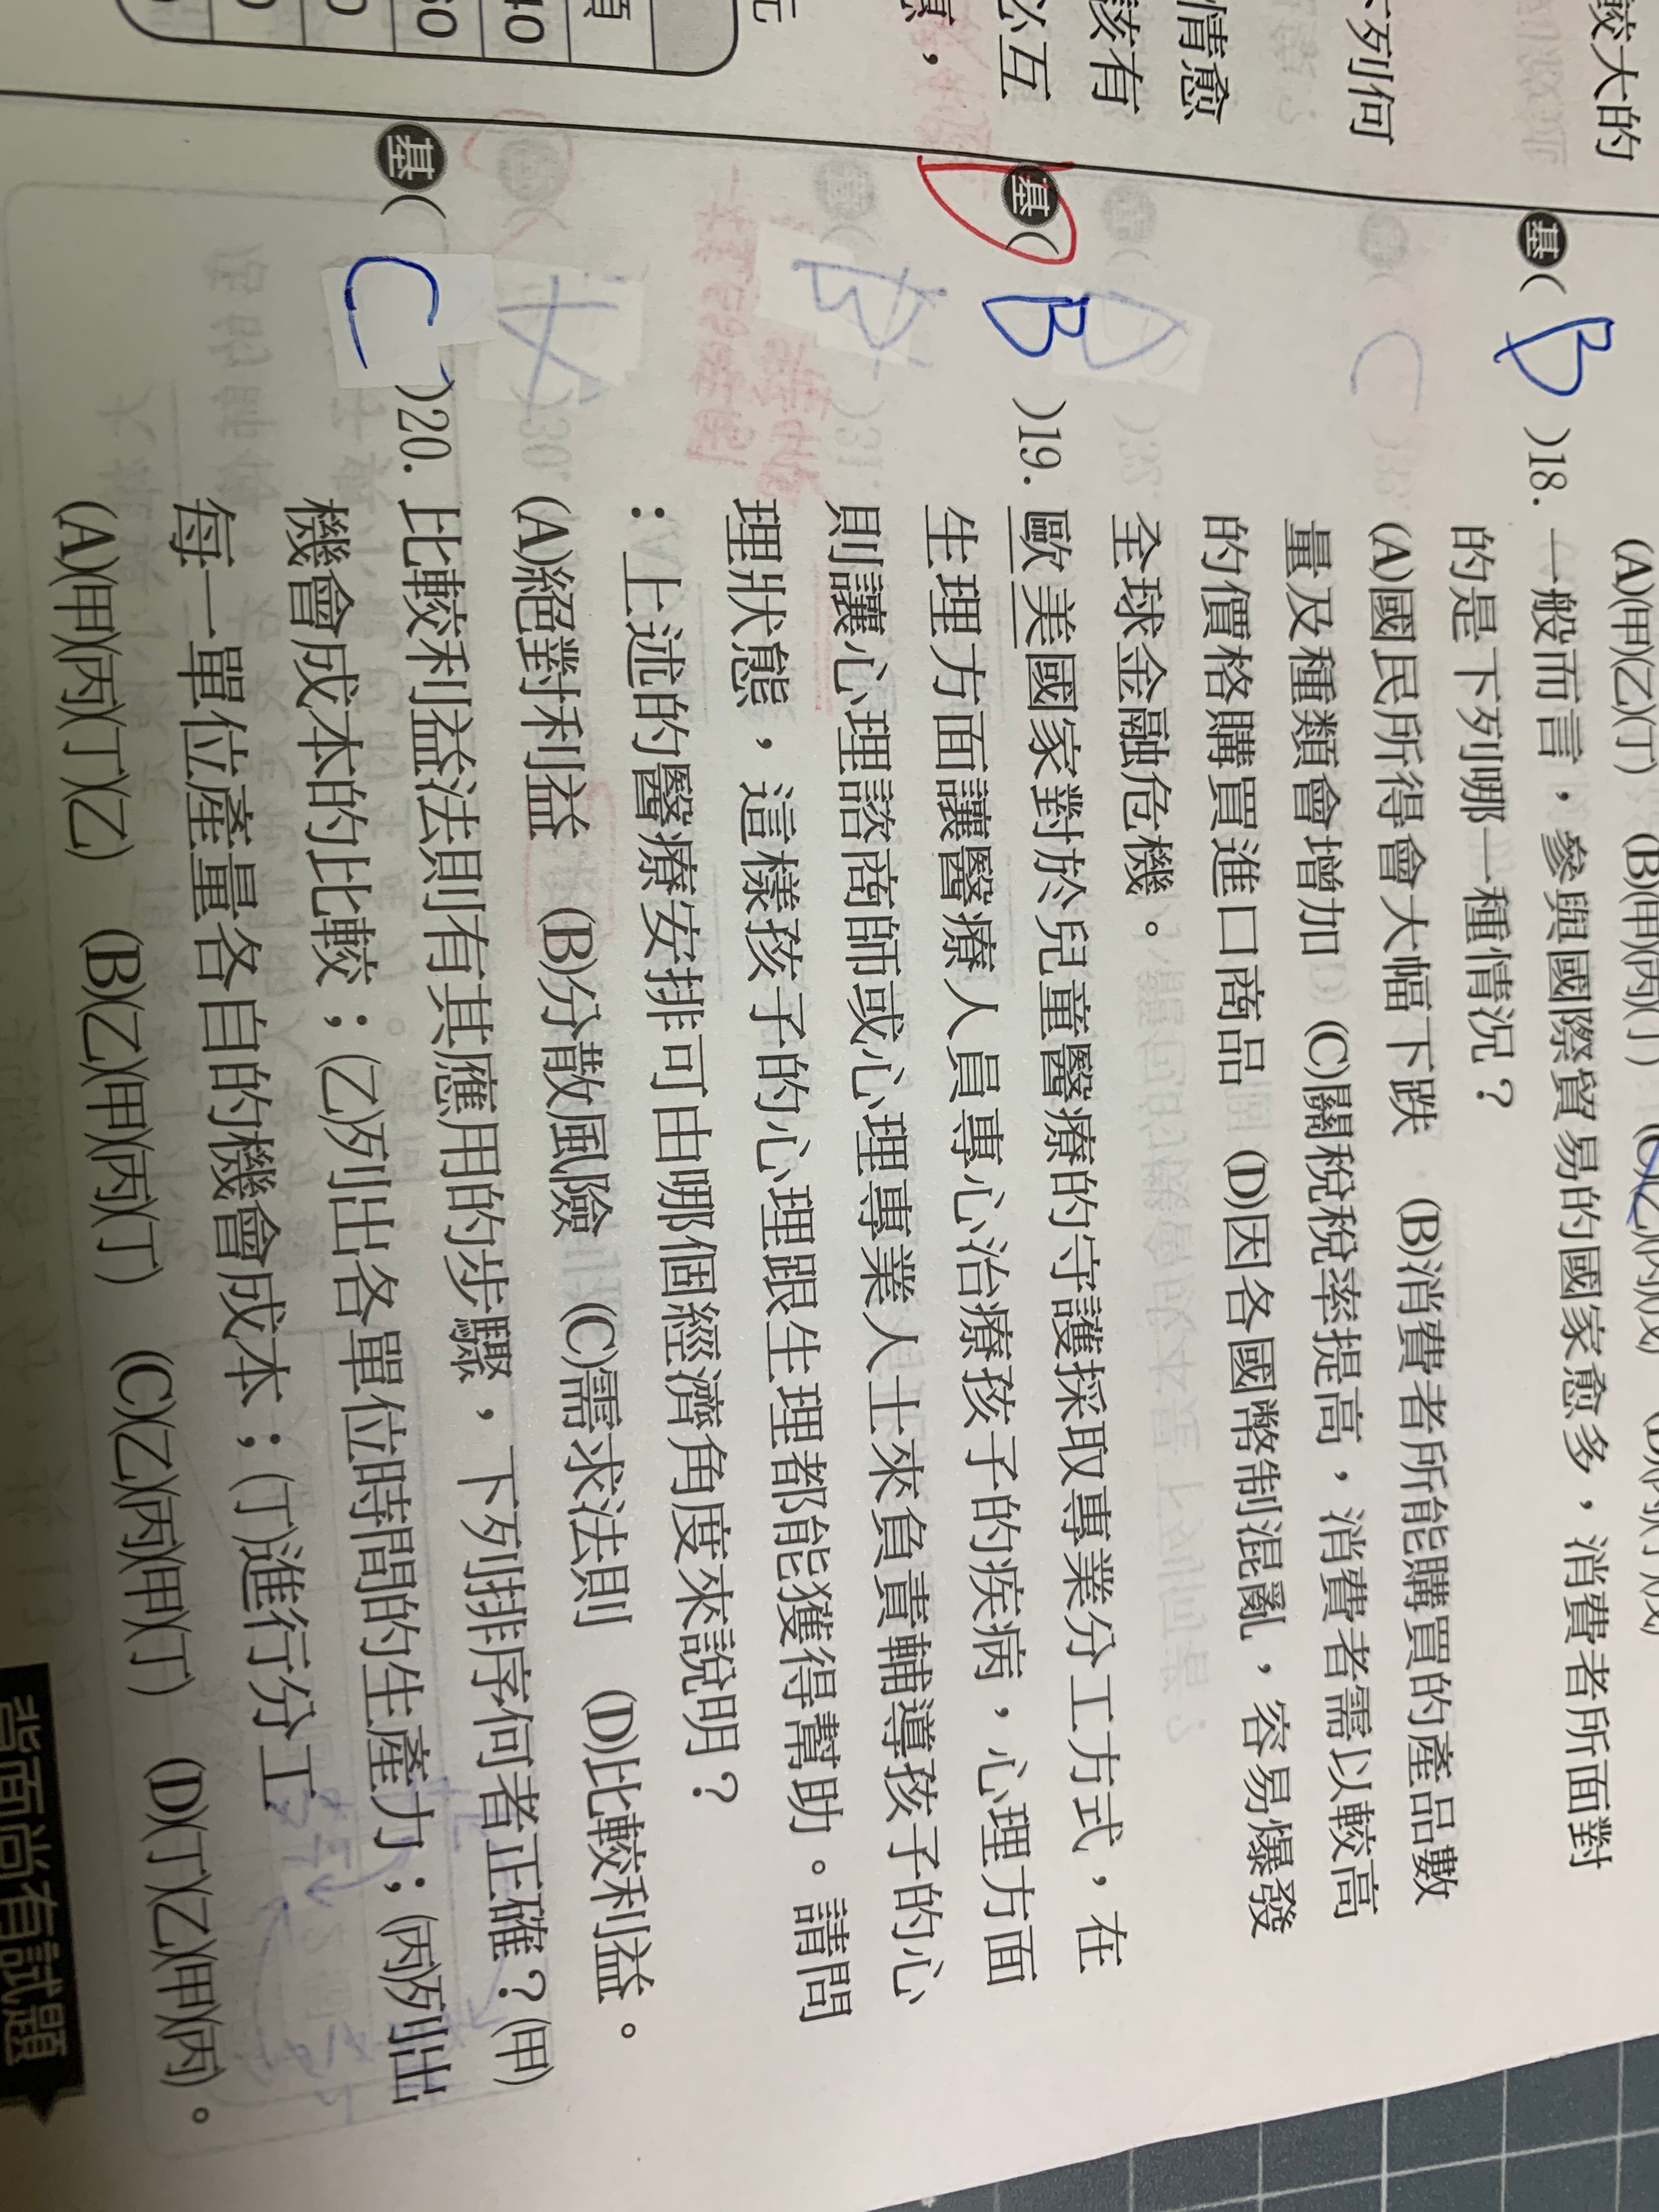 較大的
下列何
情愈
該有
必互
項
40
60
(A)(甲)(乙)(丁) (B)(甲)(丙)(丁) (C)(乙)(丙)(戊)
基( B )18. 一般而言，參與國際貿易的國家愈多，消費者所面對
的是下列哪一種情況？
(A)國民所得會大幅下跌 (B)消費者所能購買的產品數
量及種類會增加 (C)關稅稅率提高，消費者需以較高
的價格購買進口商品 (D)因各國幣制混亂，容易爆發
全球金融危機。
基( B )19. 歐美國家對於兒童醫療的守護採取專業分工方式，在
生理方面讓醫療人員專心治療孩子的疾病，心理方面
則讓心理諮商師或心理專業人士來負責輔導孩子的心
理狀態，這樣孩子的心理跟生理都能獲得幫助。請問
：上述的醫療安排可由哪個經濟角度來說明？
(A)絕對利益 (B)分散風險 (C)需求法則 (D)比較利益。
基( C )20. 比較利益法則有其應用的步驟，下列排序何者正確？(甲)
機會成本的比較；(乙)列出各單位時間的生產力；(丙)列出
每一單位產量各自的機會成本；(丁)進行分工
(A)(甲)(丙)(丁)(乙) (B)(乙)(甲)(丙)(丁) (C)(乙)(丙)(甲)(丁) (D)(丁)(乙)(甲)(丙)。
背面尚有試題